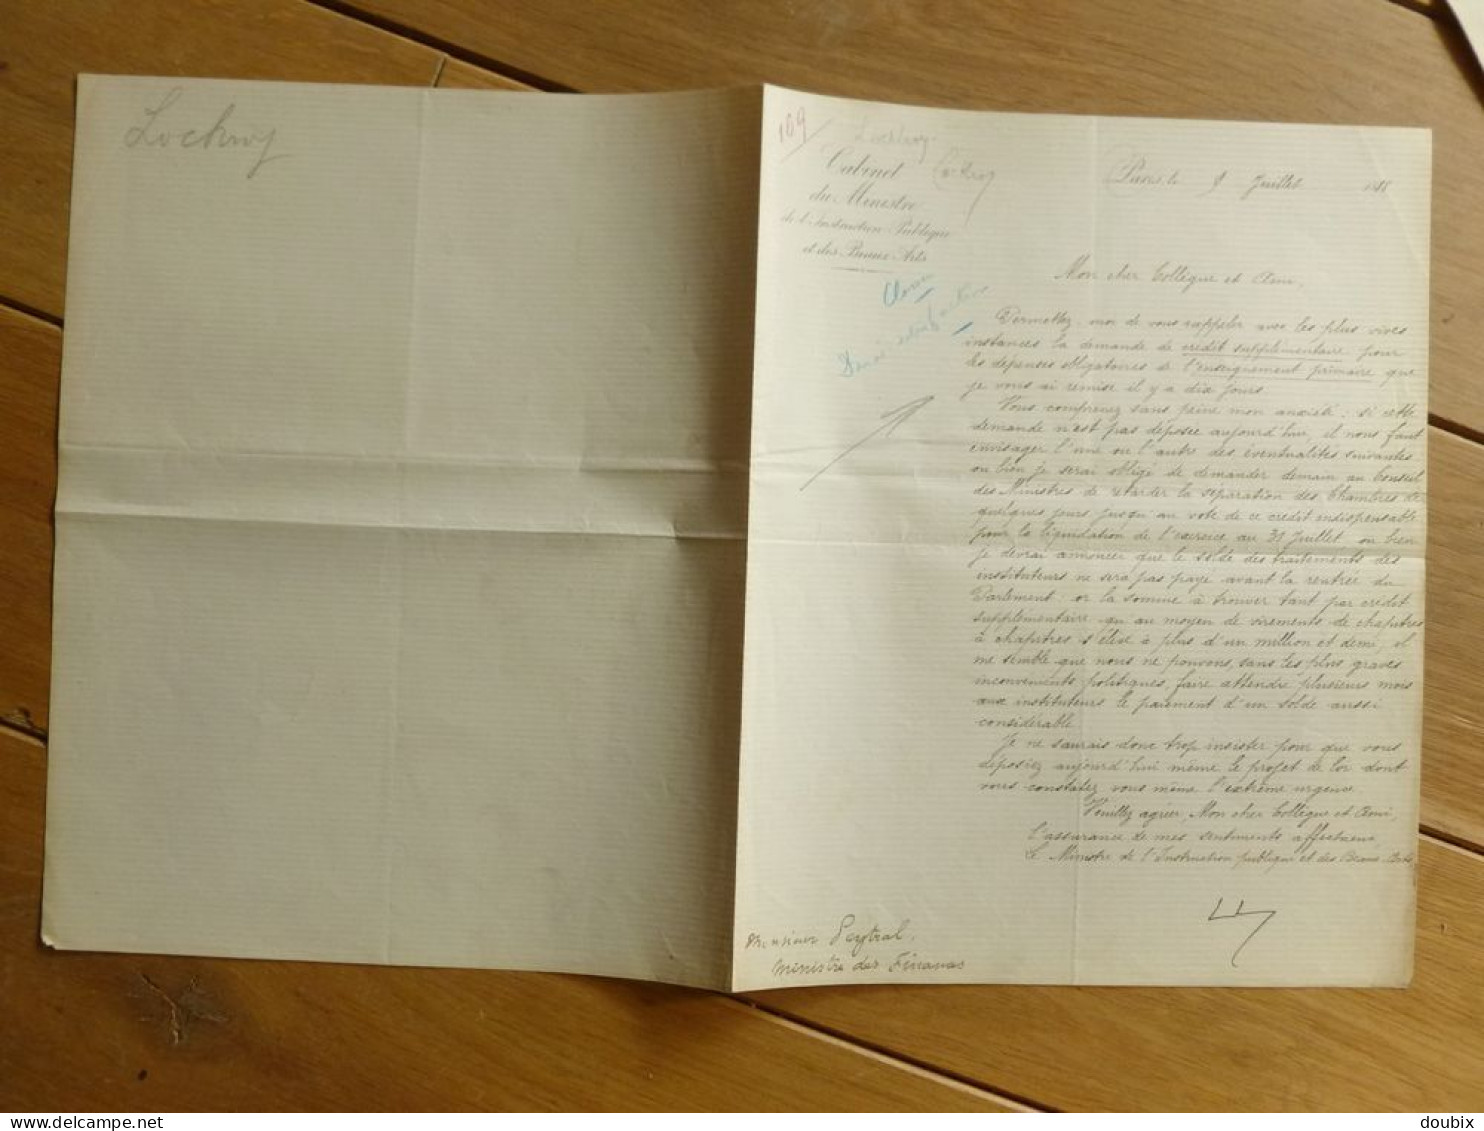 Lockroy
109
Lockroy
Lockroy
Cabinet
du Ministre
de l'Instruction Publique
et des Beaux-Arts
Paris, le 9 Juillet 188
Classer
Mon cher Collègue et Ami,
Permettez-moi de vous rappeler avec les plus vives
instances la demande de crédit supplémentaire pour
les dépenses obligatoires de l'enseignement primaire que
je vous ai remise il y a dix jours.
Vous comprenez sans peine mon anxiété : si cette
demande n'est pas déposée aujourd'hui, il nous faut
envisager l'une ou l'autre des éventualités suivantes
ou bien je serai obligé de demander demain au Conseil
des Ministres de retarder la séparation des Chambres de
quelques jours jusqu'au vote de ce crédit indispensable
pour la liquidation de l'exercice au 31 Juillet, ou bien
je devrai annoncer que le solde des traitements des
instituteurs ne sera pas payé avant la rentrée du
Parlement : or la somme à trouver tant par crédit
supplémentaire qu'au moyen de virements de chapitres
à chapitres s'élève à plus d'un million et demi, il
me semble que nous ne pouvons, sans les plus graves
inconvénients politiques, faire attendre plusieurs mois
aux instituteurs le paiement d'un solde aussi
considérable.
Je ne saurais donc trop insister pour que vous
déposiez aujourd'hui même le projet de loi dont
vous constatez vous même l'extrême urgence.
Veuillez agréer, Mon cher Collègue et Ami,
l'assurance de mes sentiments affectueux,
Le Ministre de l'Instruction publique et des Beaux-Arts
Monsieur Peytral.
Ministre des Finances
delcampe.net
doubix